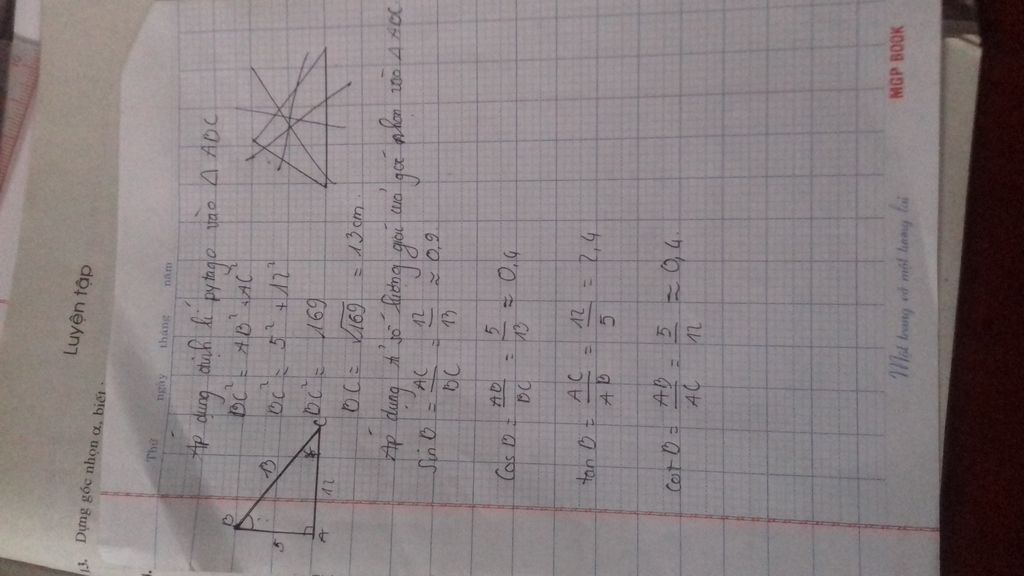 Luyện tập
13. Dựng góc nhọn α, biết:
Thứ ngày tháng năm
Áp dụng định lí pytago vào Δ ABC
BC² = AB² + AC²
BC² = 5² + 12²
BC² = 169
BC = √169 = 13 cm
B
5
13
A
12
C
Áp dụng tỉ số lượng giác của góc nhọn vào Δ ABC
Sin B = AC/BC = 12/13 ≈ 0,9
Cos B = AB/BC = 5/13 ≈ 0,4
tan B = AC/AB = 12/5 = 2,4
Cot B = AB/AC = 5/12 ≈ 0,4.
Một trang vở một tương lai
MGP BOOK